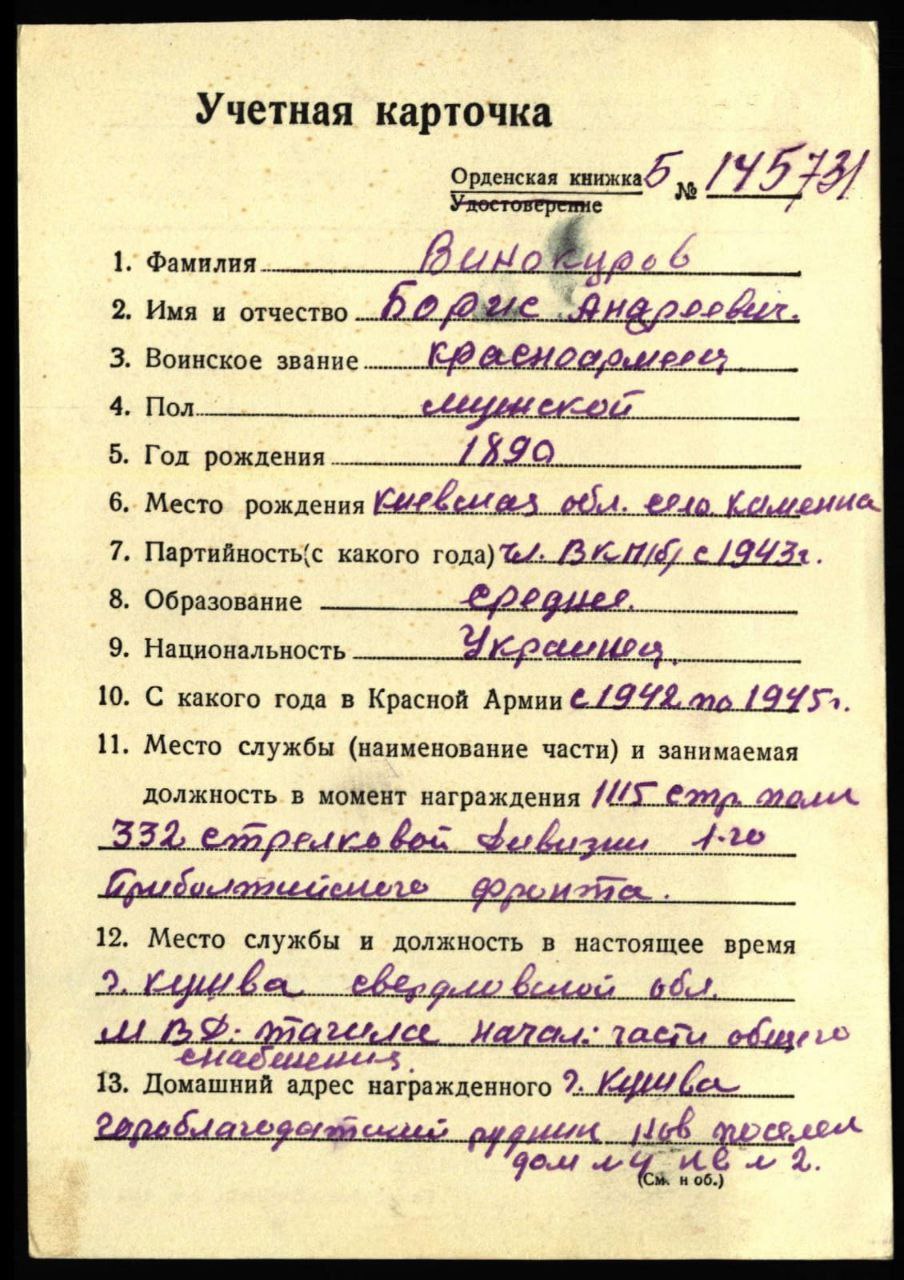 Учетная карточка
Орденская книжка Б № 145731
Удостоверение
1. Фамилия Винокуров
2. Имя и отчество Борис Андреевич.
3. Воинское звание красноармеец
4. Пол мужской
5. Год рождения 1890
6. Место рождения Киевская обл. село Каменка
7. Партийность (с какого года) чл. ВКП(б) с 1943г.
8. Образование среднее.
9. Национальность Украинец.
10. С какого года в Красной Армии с 1942 по 1945г.
11. Место службы (наименование части) и занимаемая
должность в момент награждения 1115 стр. полк
332 стрелковой дивизии 1-го
Прибалтийского фронта.
12. Место службы и должность в настоящее время
г. Кушва свердловской обл.
МВД. тагила начал: части общего
снабжения.
13. Домашний адрес награжденного г. Кушва
гороблагодатский рудник Нов поселок
дом № 4 кв № 2.
(См. н об.)